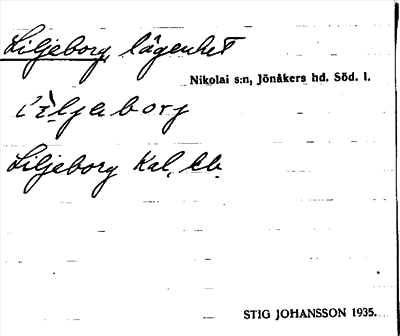 Liljeborg, lägenhet
Nikolai s:n, Jönåkers hd. Söd. l.
Liljeborg Kal. kb.
STIG JOHANSSON 1935.